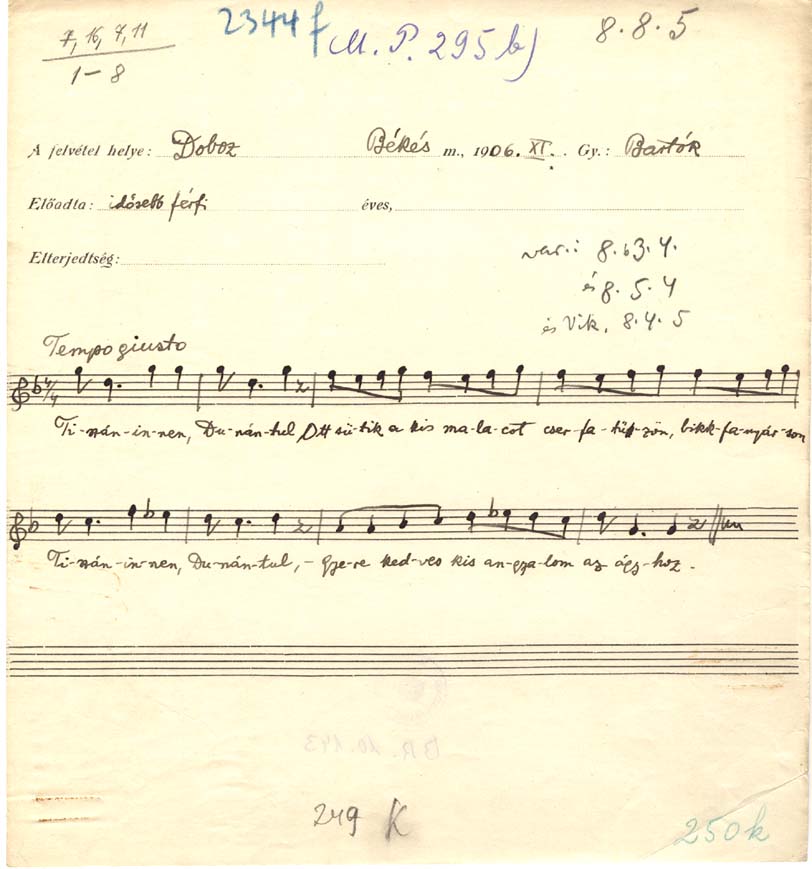 7, 16, 7, 11
1–8
2344 f
M. P. 295 b)
8. 8. 5
A felvétel helye: Doboz Békés m., 1906. XI. Gy.: Bartók
Előadta: idősebb férfi éves,
Elterjedtség:
var.: 8. b3. 4.
és 8. 5. 4
és Vik. 8. 4. 5
Tempo giusto
Ti-szán-in-nen, Du-nán-tul Ott sü-tik a kis ma-la-cot cser-fa-tü-zön, bikk-fa-nyár-son
Ti-szán-in-nen, Du-nán-tul, - gye-re ked-ves kis an-gya-lom az ágy-hoz.
BR. 10.143
249 K
250k